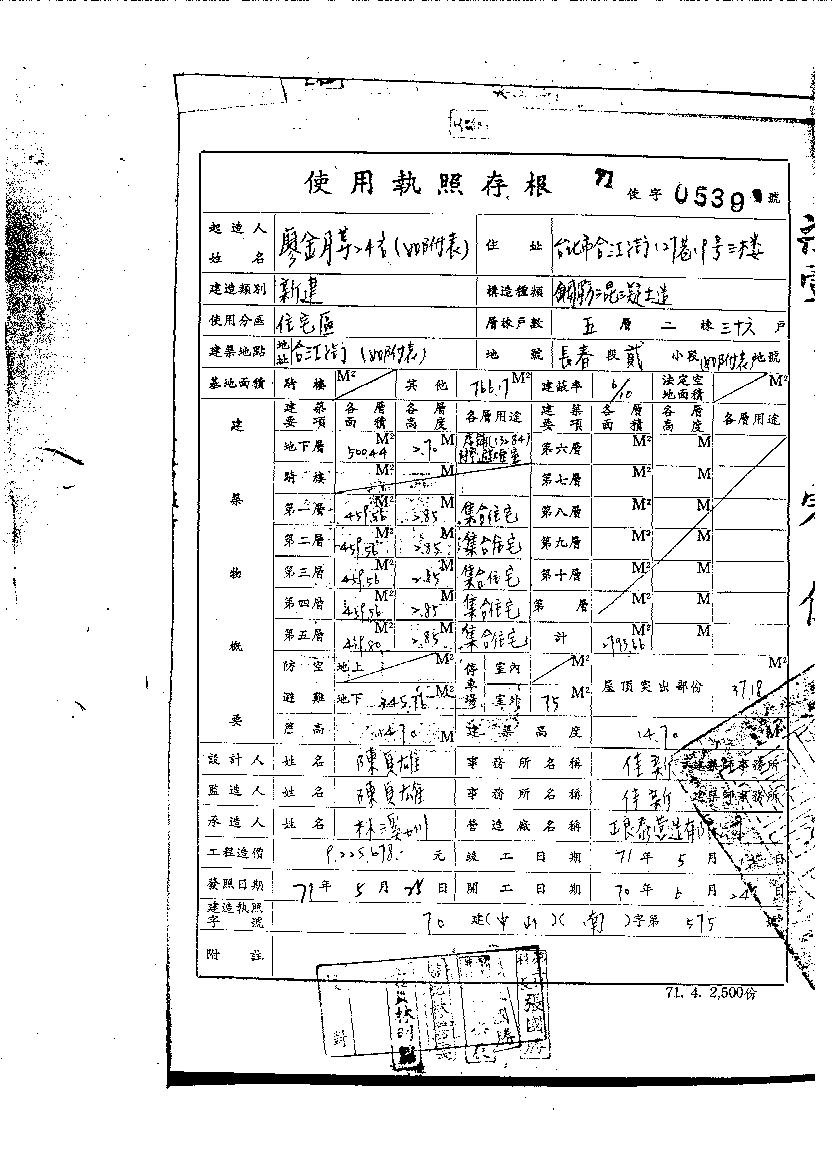 使用執照存根 71 使字 0539 號
起造人姓名 廖金月等24名(如附表) 住址 台北市合江街127巷19号三樓
建造類別 新建 構造種類 鋼筋混凝土造
使用分區 住宅區 層棟戶數 五層二棟三十六戶
建築地點 地址 合江街(如附表) 地號 長春段貳小段如附表地號
基地面積 騎樓 M² 其他 766.17 M² 建蔽率 6/10 法定空地面積 M²
建築物概要
建築要項 各層面積 各層高度 各層用途 建築要項 各層面積 各層高度 各層用途
地下層 500.44 M² 2.70 M 第六層 M² M
騎樓 M² M 第七層 M² M
第一層 459.56 M² 2.85 M 集合住宅 第八層 M² M
第二層 459.56 M² 2.85 M 集合住宅 第九層 M² M
第三層 459.56 M² 2.85 M 集合住宅 第十層 M² M
第四層 459.56 M² 2.85 M 集合住宅 第 層 M² M
第五層 M² 2.85 M 集合住宅 計 M² M
防空避難 地上 M² 停車場 室內 M² 屋頂突出部份 37.18 M²
地下 345.76 M² 室外 75 M²
簷高 14.70 M 建築高度 14.70 M
設計人 姓名 陳貞雄 事務所名稱 佳新建築師事務所
監造人 姓名 陳貞雄 事務所名稱 佳新建築師事務所
承造人 姓名 林溪圳 營造廠名稱
工程造價 9,225,678. 元 竣工日期 71年5月 日
發照日期 71年5月28日 開工日期 70年6月24日
建造執照字號 70 建(中山)(南)字第 575 號
附註
71. 4. 2,500份